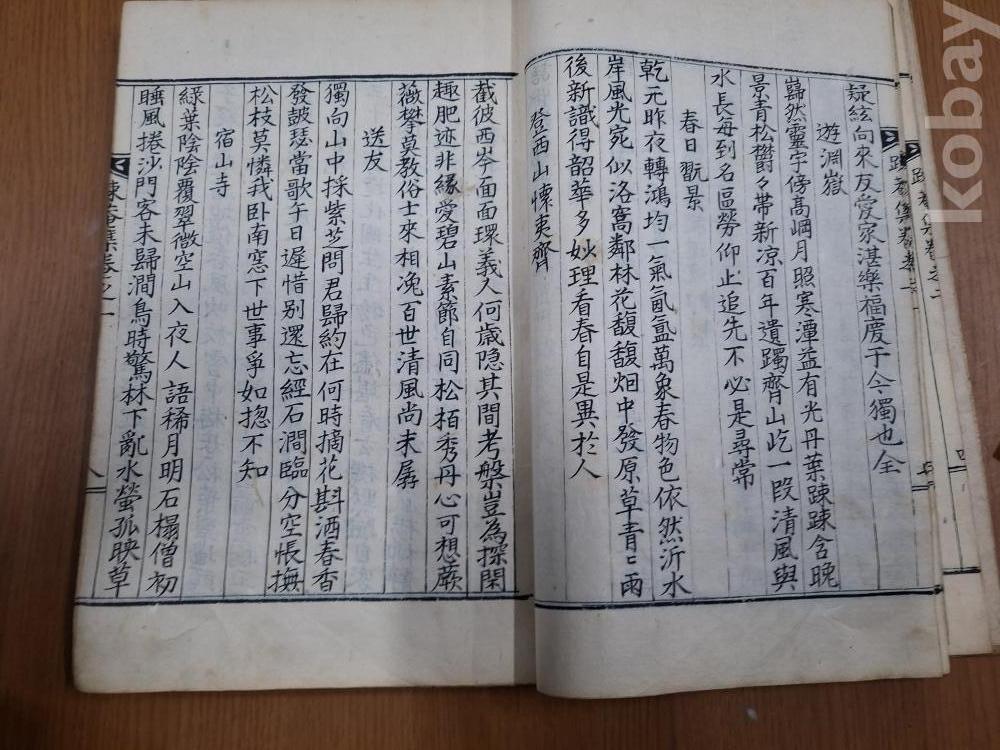 疑絃向來友愛家湛樂福慶于今獨也全
遊淵嶽
巋然靈宇傍高岡月照寒潭益有光丹葉踈踈含晚
景青松欝々帶新凉百年遺躅齊山屹一段清風與
水長每到名區勞仰止追先不必是尋常
春日翫景
乾元昨夜轉鴻均一氣氤氳萬象春物色依然沂水
岸風光宛似洛窩鄰林花馥馥畑中發原草青々雨
後新識得韶華多妙理看春自是異於人
登西山懷夷齊
截彼西岑面面環義人何歲隐其間考槃豈為探閑
趣肥迹非緣愛碧山素節自同松栢秀丹心可想蕨
薇攀莫教俗士來相浼百世清風尚未孱
送友
獨向山中採紫芝問君歸約在何時摘花斟酒春香
發皷瑟當歌午日遲惜别還忘經石澗臨分空悵撫
松枝莫憐我卧南窓下世事爭如揔不知
宿山寺
綠葉陰陰覆翠微空山入夜人語稀月明石榻僧初
睡風捲沙門客未歸澗鳥時驚林下亂水螢孤映草
八
kobay